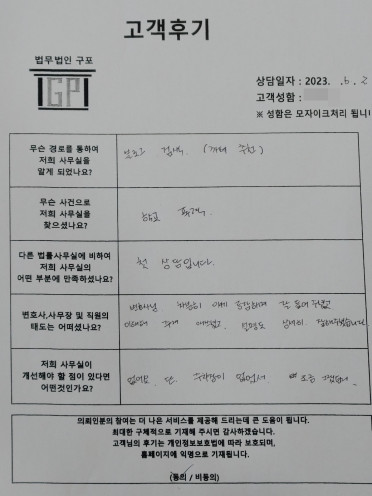 고객후기
법무법인 구포
GP
상담일자 : 2023. 6. 2
고객성함 :
※ 성함은 모자이크처리 됩니
무슨 경로를 통하여
저희 사무실을
알게 되었나요?
검색. (지인 추천)
무슨 사건으로
저희 사무실을
찾으셨나요?
다른 법률사무실에 비하여
저희 사무실의
어떤 부분에 만족하셨나요?
첫 상담입니다.
변호사,사무장 및 직원의
태도는 어떠셨나요?
변호사님
잘 들어주셨고
저희 사무실이
개선해야 할 점이 있다면
어떤것인가요?
없어요. 단. 주차장이 없어서 조금
의뢰인분의 참여는 더 나은 서비스를 제공해 드리는데 큰 도움이 됩니다.
최대한 구체적으로 기재해 주시면 감사하겠습니다.
고객님의 후기는 개인정보보호법에 따라 보호되며,
홈페이지에 익명으로 기재됩니다.
(동의 / 비동의)